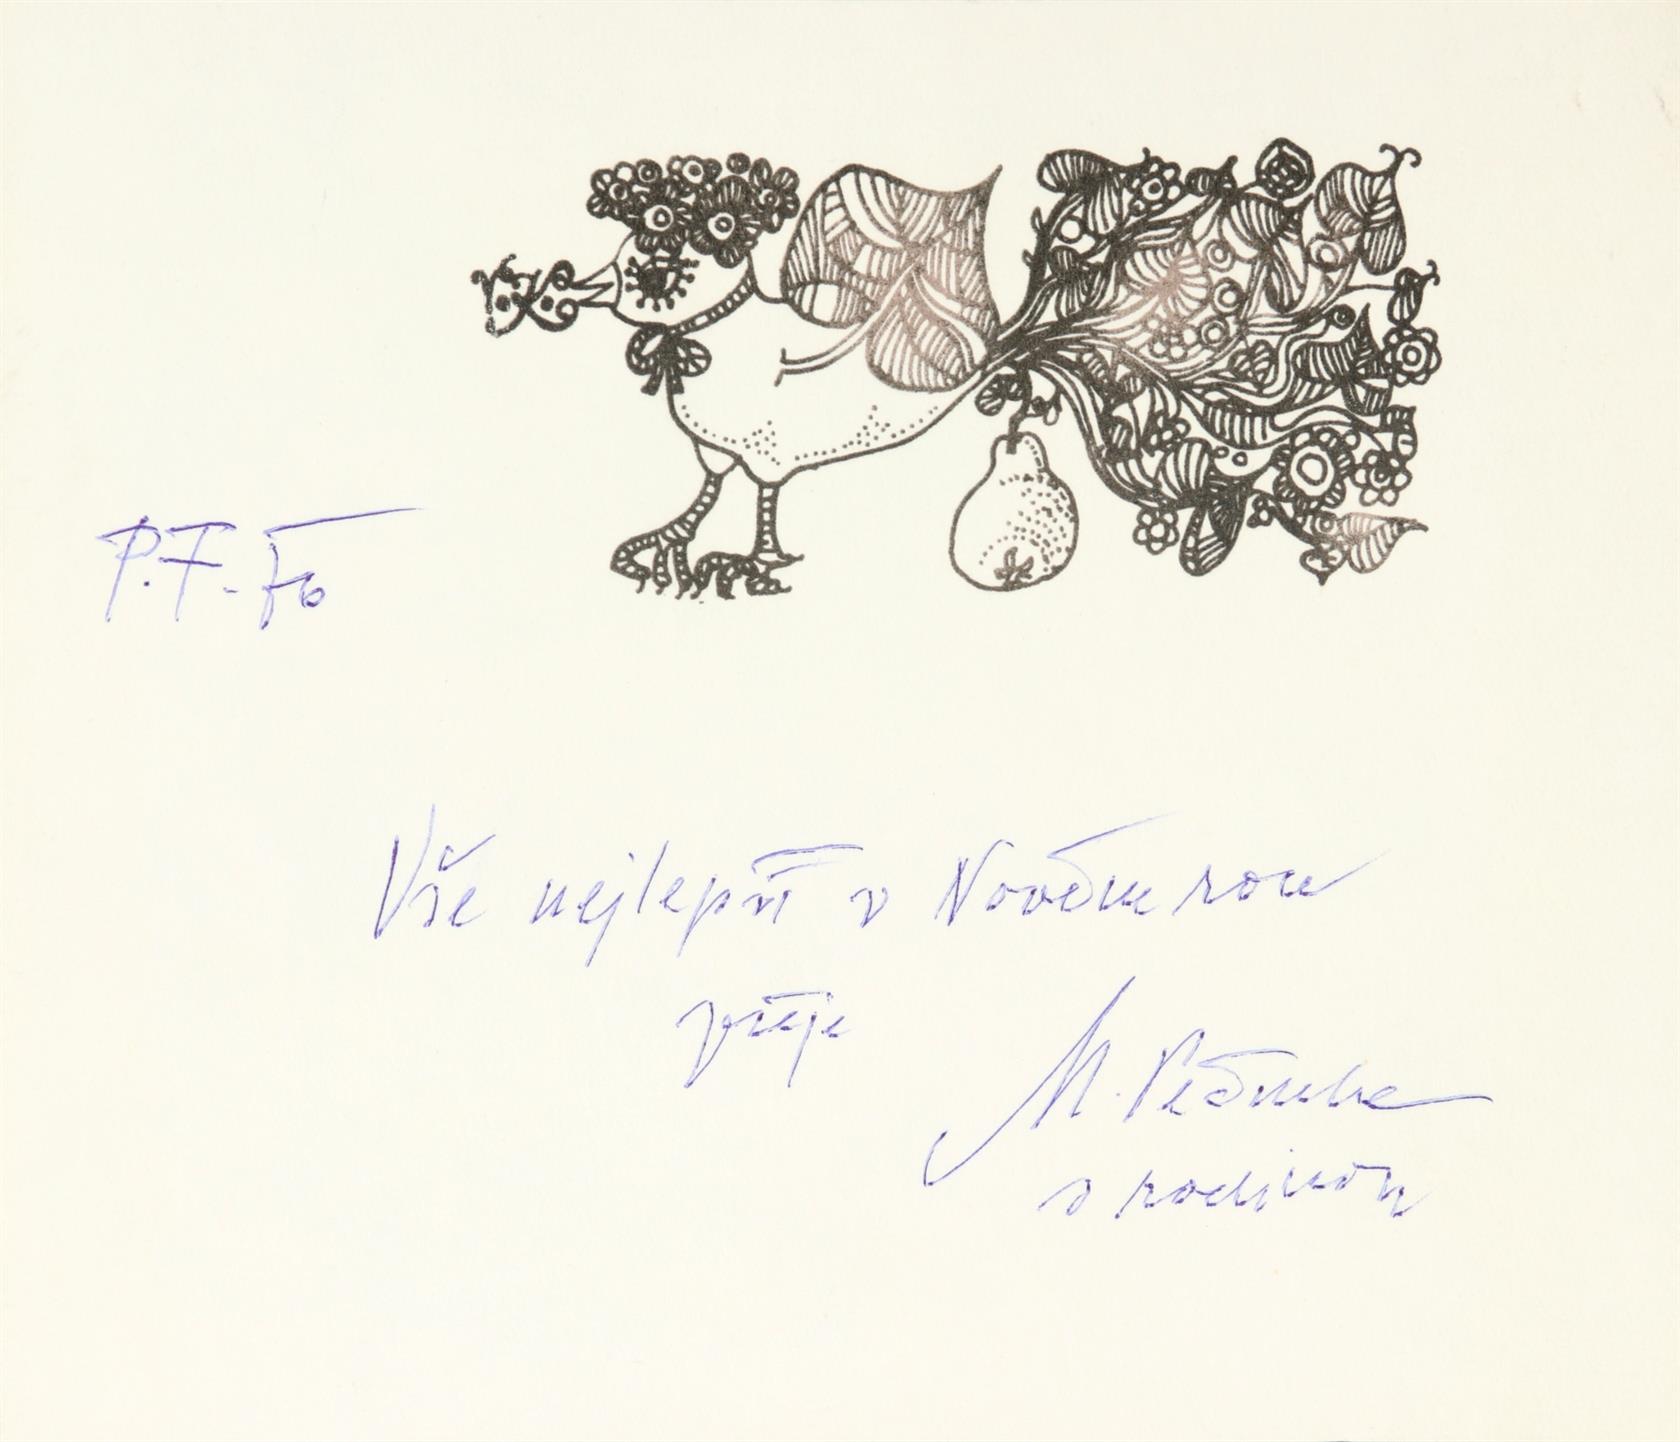 P.F. 76
Vše nejlepší v Novém roce
přeje
M.
s rodinou